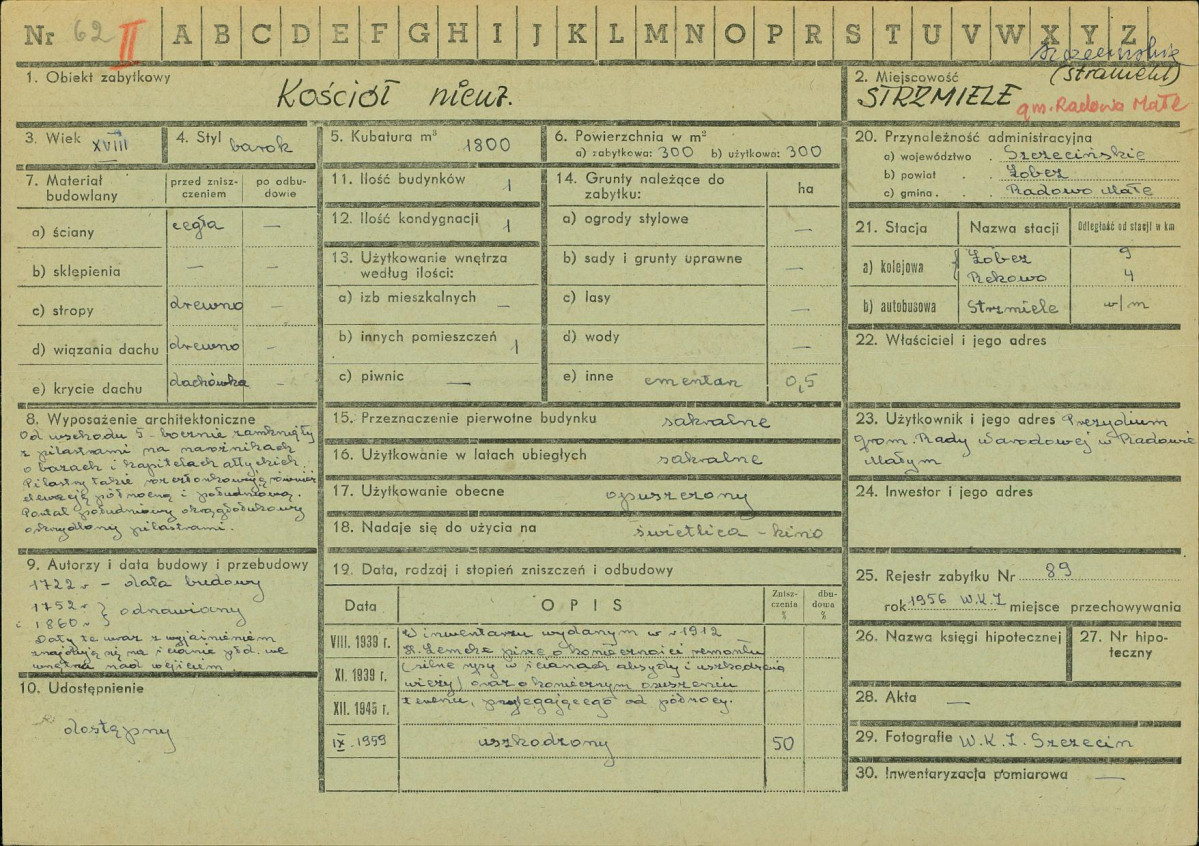 Nr 62 II A B C D E F G H I J K L M N O P R S T U V W X Y Z
szczecińskie
1. Obiekt zabytkowy
Kościół nieuż.
2. Miejscowość
(Stramehl)
STRZMIELE
gm. Radowo Małe
3. Wiek XVIII
4. Styl barok
5. Kubatura m³ 1800
6. Powierzchnia w m²
a) zabytkowa: 300 b) użytkowa: 300
7. Materiał budowlany
przed zniszczeniem
po odbudowie
a) ściany cegła —
b) sklepienia — —
c) stropy drewno —
d) wiązania dachu drewno —
e) krycie dachu dachówka —
8. Wyposażenie architektoniczne
Od wschodu 5-bocznie zamknięty
z pilastrami na narożnikach
o bazach i kapitelach attyckich.
Pilastry takie rozczłonkowują również
elewację północną i południową.
Portal południowy okrągłołukowy
oskrzydlony pilastrami.
9. Autorzy i data budowy i przebudowy
1722 r – data budowy
1752 r } odnawiany
i 1860 r }
Daty te wraz z wyjaśnieniem
znajdują się na ścianie płd. we
wnętrza nad wejściem
10. Udostępnienie
dostępny
11. Ilość budynków 1
12. Ilość kondygnacji 1
13. Użytkowanie wnętrza
według ilości:
a) izb mieszkalnych —
b) innych pomieszczeń 1
c) piwnic —
14. Grunty należące do
zabytku:
ha
a) ogrody stylowe —
b) sady i grunty uprawne —
c) lasy —
d) wody —
e) inne cmentarz 0,5
15. Przeznaczenie pierwotne budynku sakralne
16. Użytkowanie w latach ubiegłych sakralne
17. Użytkowanie obecne opuszczony
18. Nadaje się do użycia na świetlica – kino
19. Data, rodzaj i stopień zniszczeń i odbudowy
Data
OPIS
Zniszczenia %
dbudowa %
VIII. 1939 r.
XI. 1939 r.
XII. 1945 r.
W inwentarzu wydanym w r 1912
H. Lemcke pisze o konieczności remontu
(silne rysy w ścianach absydy i uszkodzenia
wieży) oraz o koniecznym osuszeniu
terenu, przylegającego od północy.
IX. 1959 uszkodzony 50
20. Przynoleżność administracyjna
a) województwo . Szczecińskie
b) powiat . Łobez
c) gmina . Radowo Małe
21. Stacja
Nazwa stacji
Odległość od stacji w km
a) kolejowa { Łobez 9
Rekowo 4
b) autobusowa Strzmiele w/m
22. Właściciel i jego adres
23. Użytkownik i jego adres Prezydium
Grom. Rady Narodowej w Radowie
Małym
24. Inwestor i jego adres
25. Rejestr zabytku Nr 89
rok 1956 W.K.Z miejsce przechowywania
26. Nazwa księgi hipotecznej
27. Nr hipoteczny
28. Akta —
29. Fotografie W.K.Z. Szczecin
30. Inwentaryzacja pomiarowa —